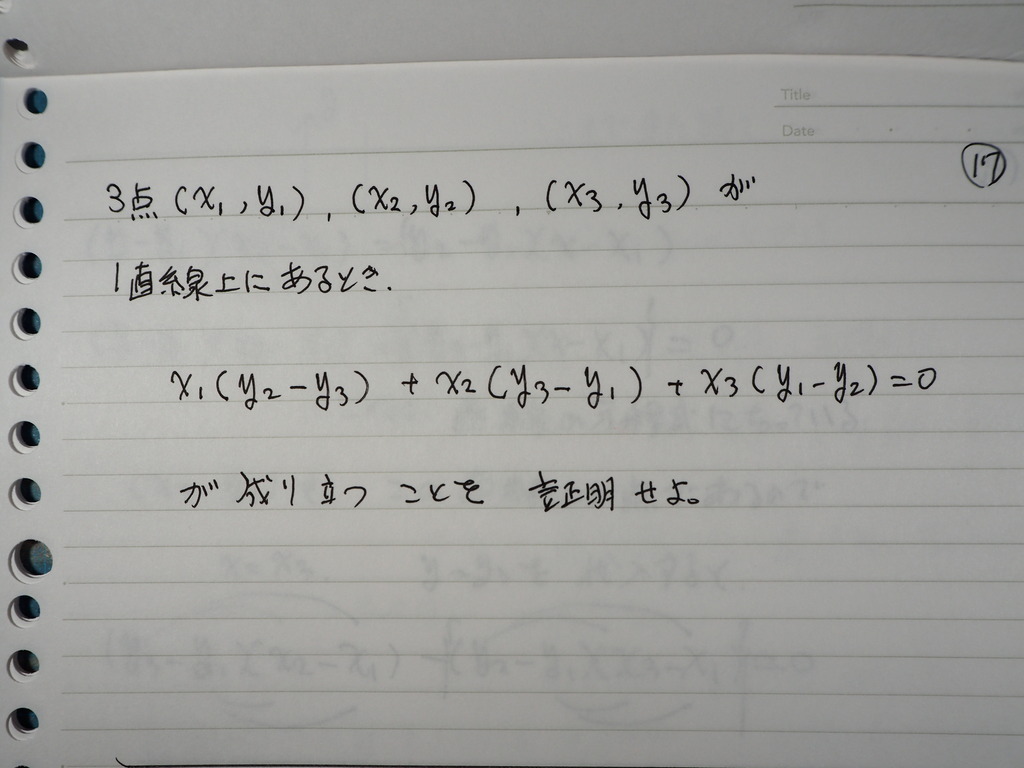 Title
Date
⑰
3点 (x₁, y₁), (x₂, y₂), (x₃, y₃) が
1直線上にあるとき.
x₁(y₂−y₃) + x₂(y₃−y₁) + x₃(y₁−y₂)=0
が成り立つことを 証明せよ。